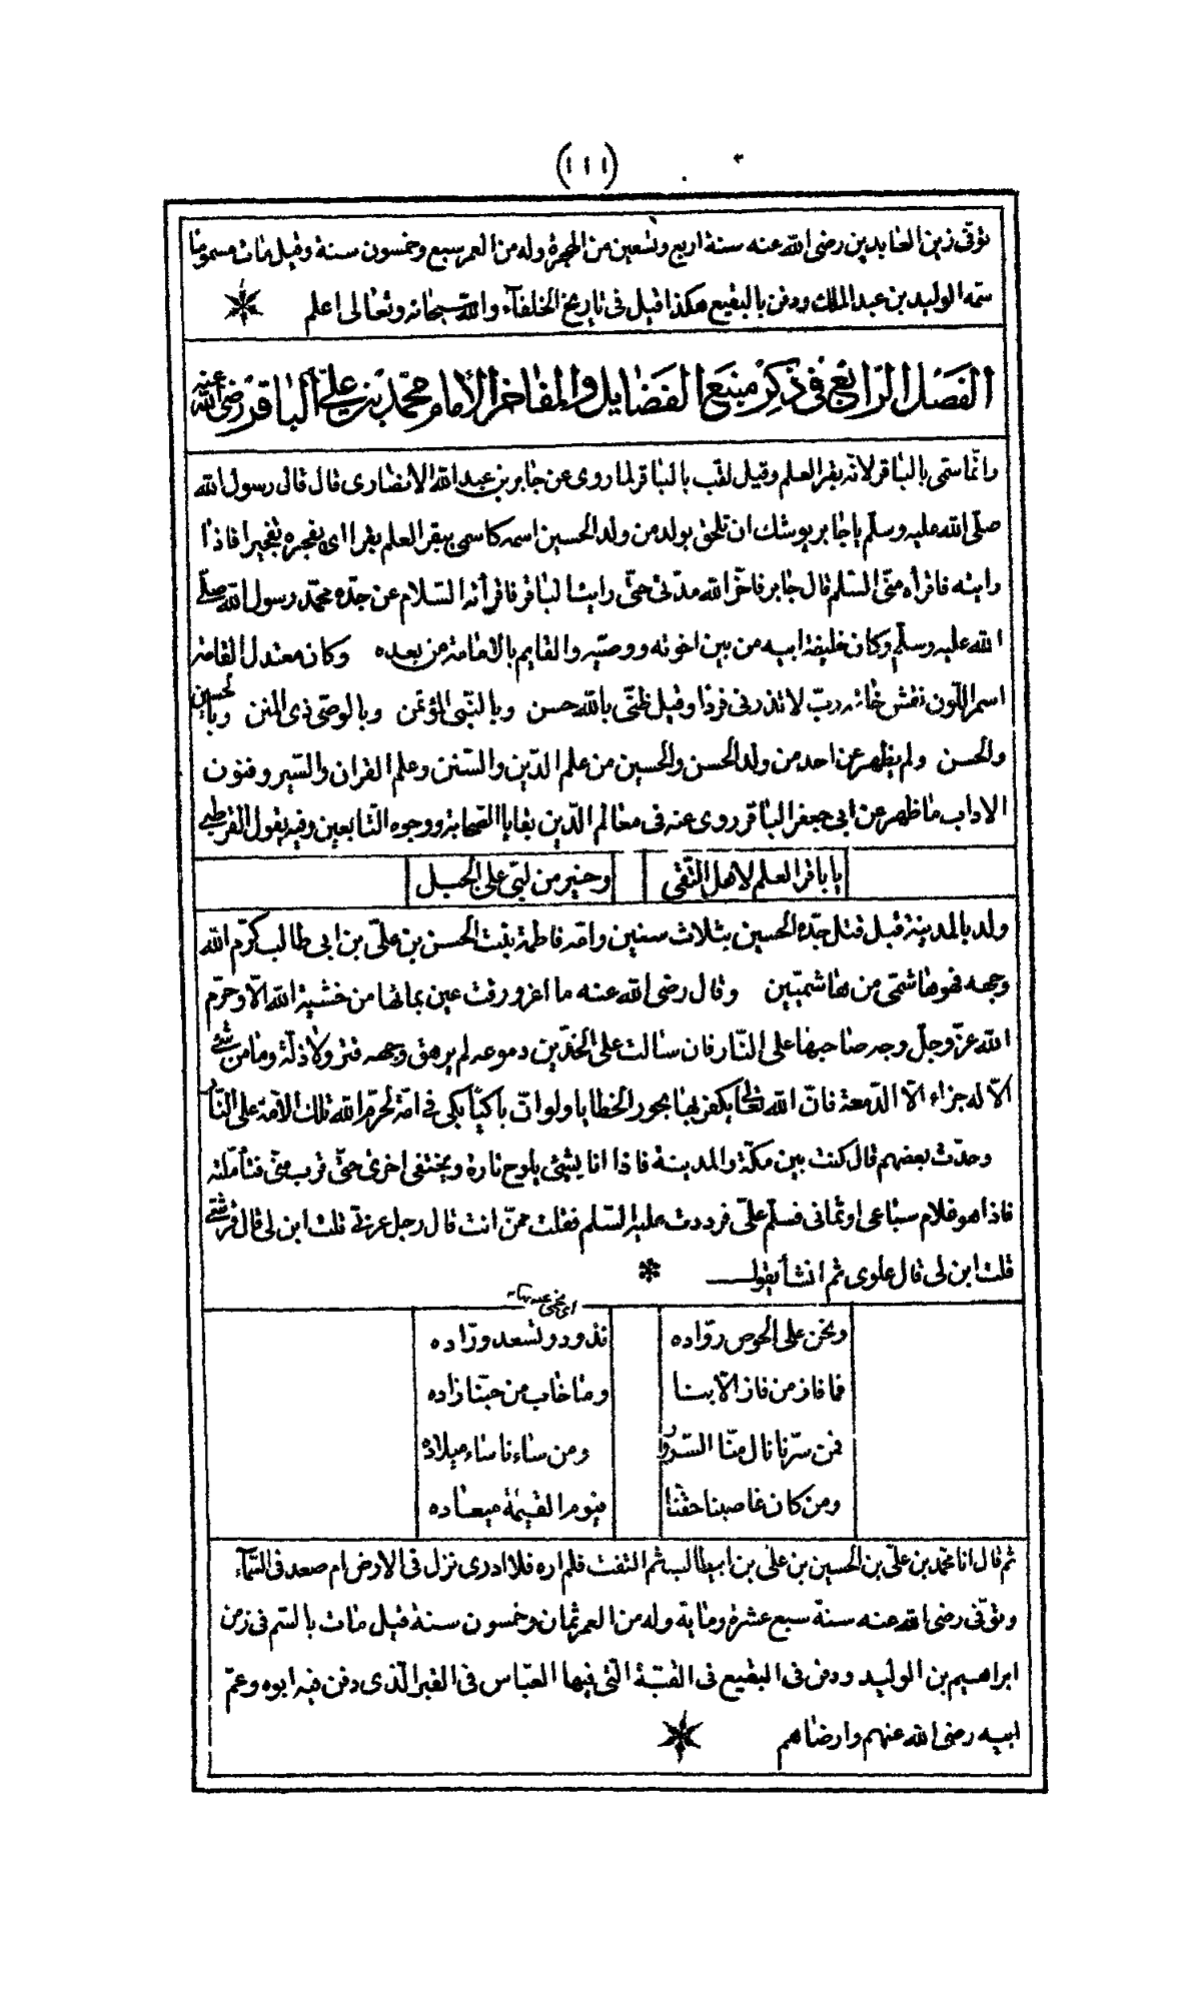 (١١١)
توفّى زين العابدين رضى الله عنه سنة اربع وتسعين من الهجرة وله من العمر سبع وخمسون سنة وقيل مات مسموما
سمّه الوليد بن عبد الملك ودفن بالبقيع هكذا قيل فى تاريخ الخلفآء والله سبحانه وتعالى اعلم
الفصل الرّابع فى ذكر منبع الفضايل والمفاخر الامام محمّد بن علىّ الباقر رضى الله عنه
وانّما سمّى بالباقر لانّه بقر العلم وقيل لقب بالباقر لما روى عن جابر بن عبد الله الانصارى قال قال رسول الله
صلّى الله عليه وسلّم يا جابر يوشك ان تلحق بولد من ولد الحسين اسمه كاسمى يبقر العلم بقرا اى يفجره تفجيرا فاذا
رايته فاقرأه منّى السّلم قال جابر فاخّر الله مدّتى حتّى رايت الباقر فاقرأته السّلام عن جدّه محمّد رسول الله صلّى
الله عليه وسلّم وكان خليفة ابيه من بين اخوته ووصيّه والقايم بالامامة من بعده وكان معتدل القامة
اسمر اللّون نقش خاتمه ربّ لا تذرنى فردا وقيل ظنّى بالله حسن وبالنّبى المؤتمن وبالوصىّ ذى المنن وبالحسين
والحسن ولم يظهر عن احد من ولد الحسن والحسين من علم الدّين والسّنن وعلم القران والسّير وفنون
الاداب ما ظهر عن ابى جعفر الباقر روى عنه فى معالم الدّين بقايا الصّحابة ووجوه التّابعين وفيه يقول القرطبى
يا باقر العلم لاهل التّقى وخير من لبّى على الجبل
ولد بالمدينة قبل قتل جدّه الحسين بثلاث سنين وامّه فاطمة بنت الحسن بن علىّ بن ابى طالب كرّم الله
وجهه فهو هاشمى من هاشميّين وقال رضى الله عنه ما اغرورقت عين بمائها من خشية الله الّا وحرّم
الله عزّ وجلّ وجه صاحبها على النّار فان سالت على الخدّين دموعه لم يرهق وجهه قتر ولا ذلّة وما من شئ
الّا له جزاء الّا الدّمعة فانّ الله تعالى يكفّر بها بحور الخطايا ولو انّ باكيا بكى فى امّة لحرّم الله تلك الامّة على النّار
وحدّث بعضهم قال كنت بين مكّة والمدينة فاذا انا بشئ يلوح تارة ويختفى اخرى حتّى قرب منّى فتأمّلته
فاذا هو غلام سباعى او ثمانى فسلّم علىّ فرددت عليه السّلم فقلت ممّن انت قال رجل عربىّ قلت ابن لى قال قرشىّ
قلت ابن لى قال علوى ثم انشأ يقول
ونحن على الحوض روّاده نذود ونسعد ورّاده
فما فاز من فاز الّا بنا وما خاب من حبّنا زاده
فمن سرّنا نال منّا السّرور ومن ساءنا ساء ميلاده
ومن كان غاصبنا حقّنا فيوم القيمة ميعاده
ثم قال انا محمّد بن علىّ بن الحسين بن على بن ابيطالب ثم التفت فلم اره فلا ادرى نزل فى الارض ام صعد فى السّمآء
وتوفّى رضى الله عنه سنة سبع عشرة وماية وله من العمر ثمان وخمسون سنة قيل مات بالسّم فى زمن
ابراهيم بن الوليد ودفن فى البقيع فى القبّة الّتى فيها العبّاس فى القبر الّذى دفن فيه ابوه وعمّ
ابيه رضى الله عنهم وارضاهم